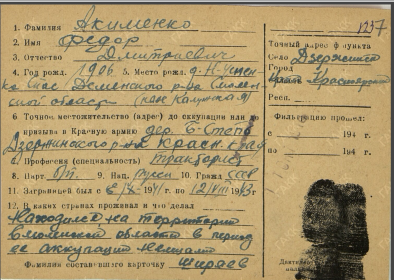 1257
1. Фамилия Акименко
2. Имя Федор
3. Отчество Дмитриевич
4. Год рожд. 1906 5. Место рожд. д. Н-
Спас Деменского р-на Смолен-
ской области (нын. Калужская)
6. Точное местожительство (адрес) до оккупации или до
призыва в Красную армию дер. Степь
Дзержинского р-на Красн. края
7. Профессия (специальность) тракторист
8. Парт. б/п. 9. Нац. русск 10. Гражд. ссср
11. Заграницей был с 194 г. по VIII 1943 г.
12. В каких странах проживал и что делал
Находился на территории
Смоленской области в период
ее оккупации немцами
Фамилия составившего карточку Ширяев
Точный адрес ф пункта
Село Дзержинск
Город
Край Красноярский
Респ.
Фильтрацию прошел:
с 194 г.
по 194 г.